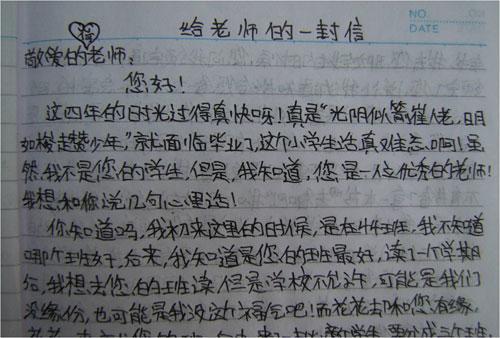 NO.
DATE
给老师的一封信
敬爱的老师:
您好!
这四年的时光过得真快呀!真是"光阴似箭催人老,日月
如梭趱少年。"就面临毕业了,这个小学生活真难忘啊!虽
然,我不是您的学生,但是,我知道,您是一位优秀的老师!
我想和你说几句心里话!
你知道吗,我初来这里的时候,是在4年班,我不知道
哪个班好,后来,我知道是您的班最好,读了一个学期
后,我想去您的班读,但是学校不允许,可能是我们
没缘份,也可能是我没这个福气吧!而花花却和您有缘,